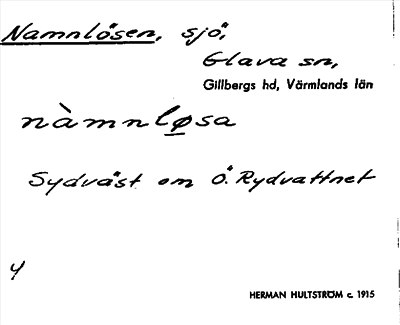 Namnlösen, sjö,
Glava sn,
Gillbergs hd, Värmlands län
nàmnlø̲sa
Sydväst om Ö. Rydvattnet
4
HERMAN HULTSTRÖM c. 1915